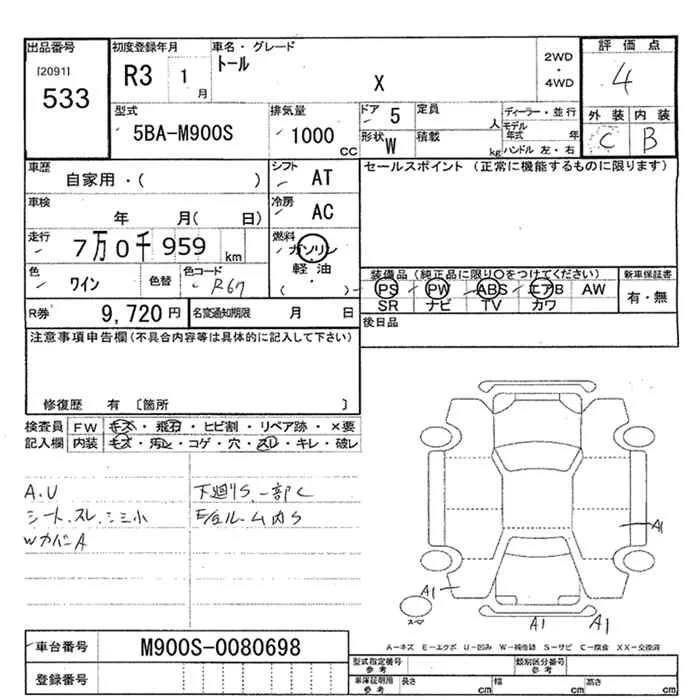 出品番号
[2091]
533
初度登録年月
R3 1
月
車名・グレード
トール
X
2WD
・
4WD
評価点
4
外装 内装
C B
型式
5BA-M900S
排気量
1000
CC
ドア 5
形状 W
定員
人
積載
kg
ディーラー・並行
モデル
年式 年
ハンドル 左・右
車歴
自家用・( )
シフト
AT
車検
年 月( 日)
冷房
AC
走行
7万0千959 km
燃料
ガソリン
軽油
・
( )
色
ワイン
色替
色コード
R67
セールスポイント (正常に機能するものに限ります)
装備品(純正品に限り○をつけてください)
PS PW ABS エアB AW
SR ナビ TV カワ
新車保証書
有・無
R券
9,720円
名変通知期限 月 日
後日品
注意事項申告欄(不具合内容等は具体的に記入して下さい)
修復歴 有 〔箇所 〕
検査員 FW キズ・飛石・ヒビ割・リペア跡・×要
記入欄 内装 キズ・汚レ・コゲ・穴・スレ・キレ・破レ
A.U
シート.スレ.シミ小
WカバーA
下廻りS.一部C
A1
A1
A1
A1
スペア
A-キズ E-エクボ U-凹み W-補修跡 S-サビ C-腐食 XX-交換済
車台番号
M900S-0080698
登録番号
型式指定番号
参考
類別区分番号
参考
車庫証明用
参考
長さ cm 幅 cm 高さ cm